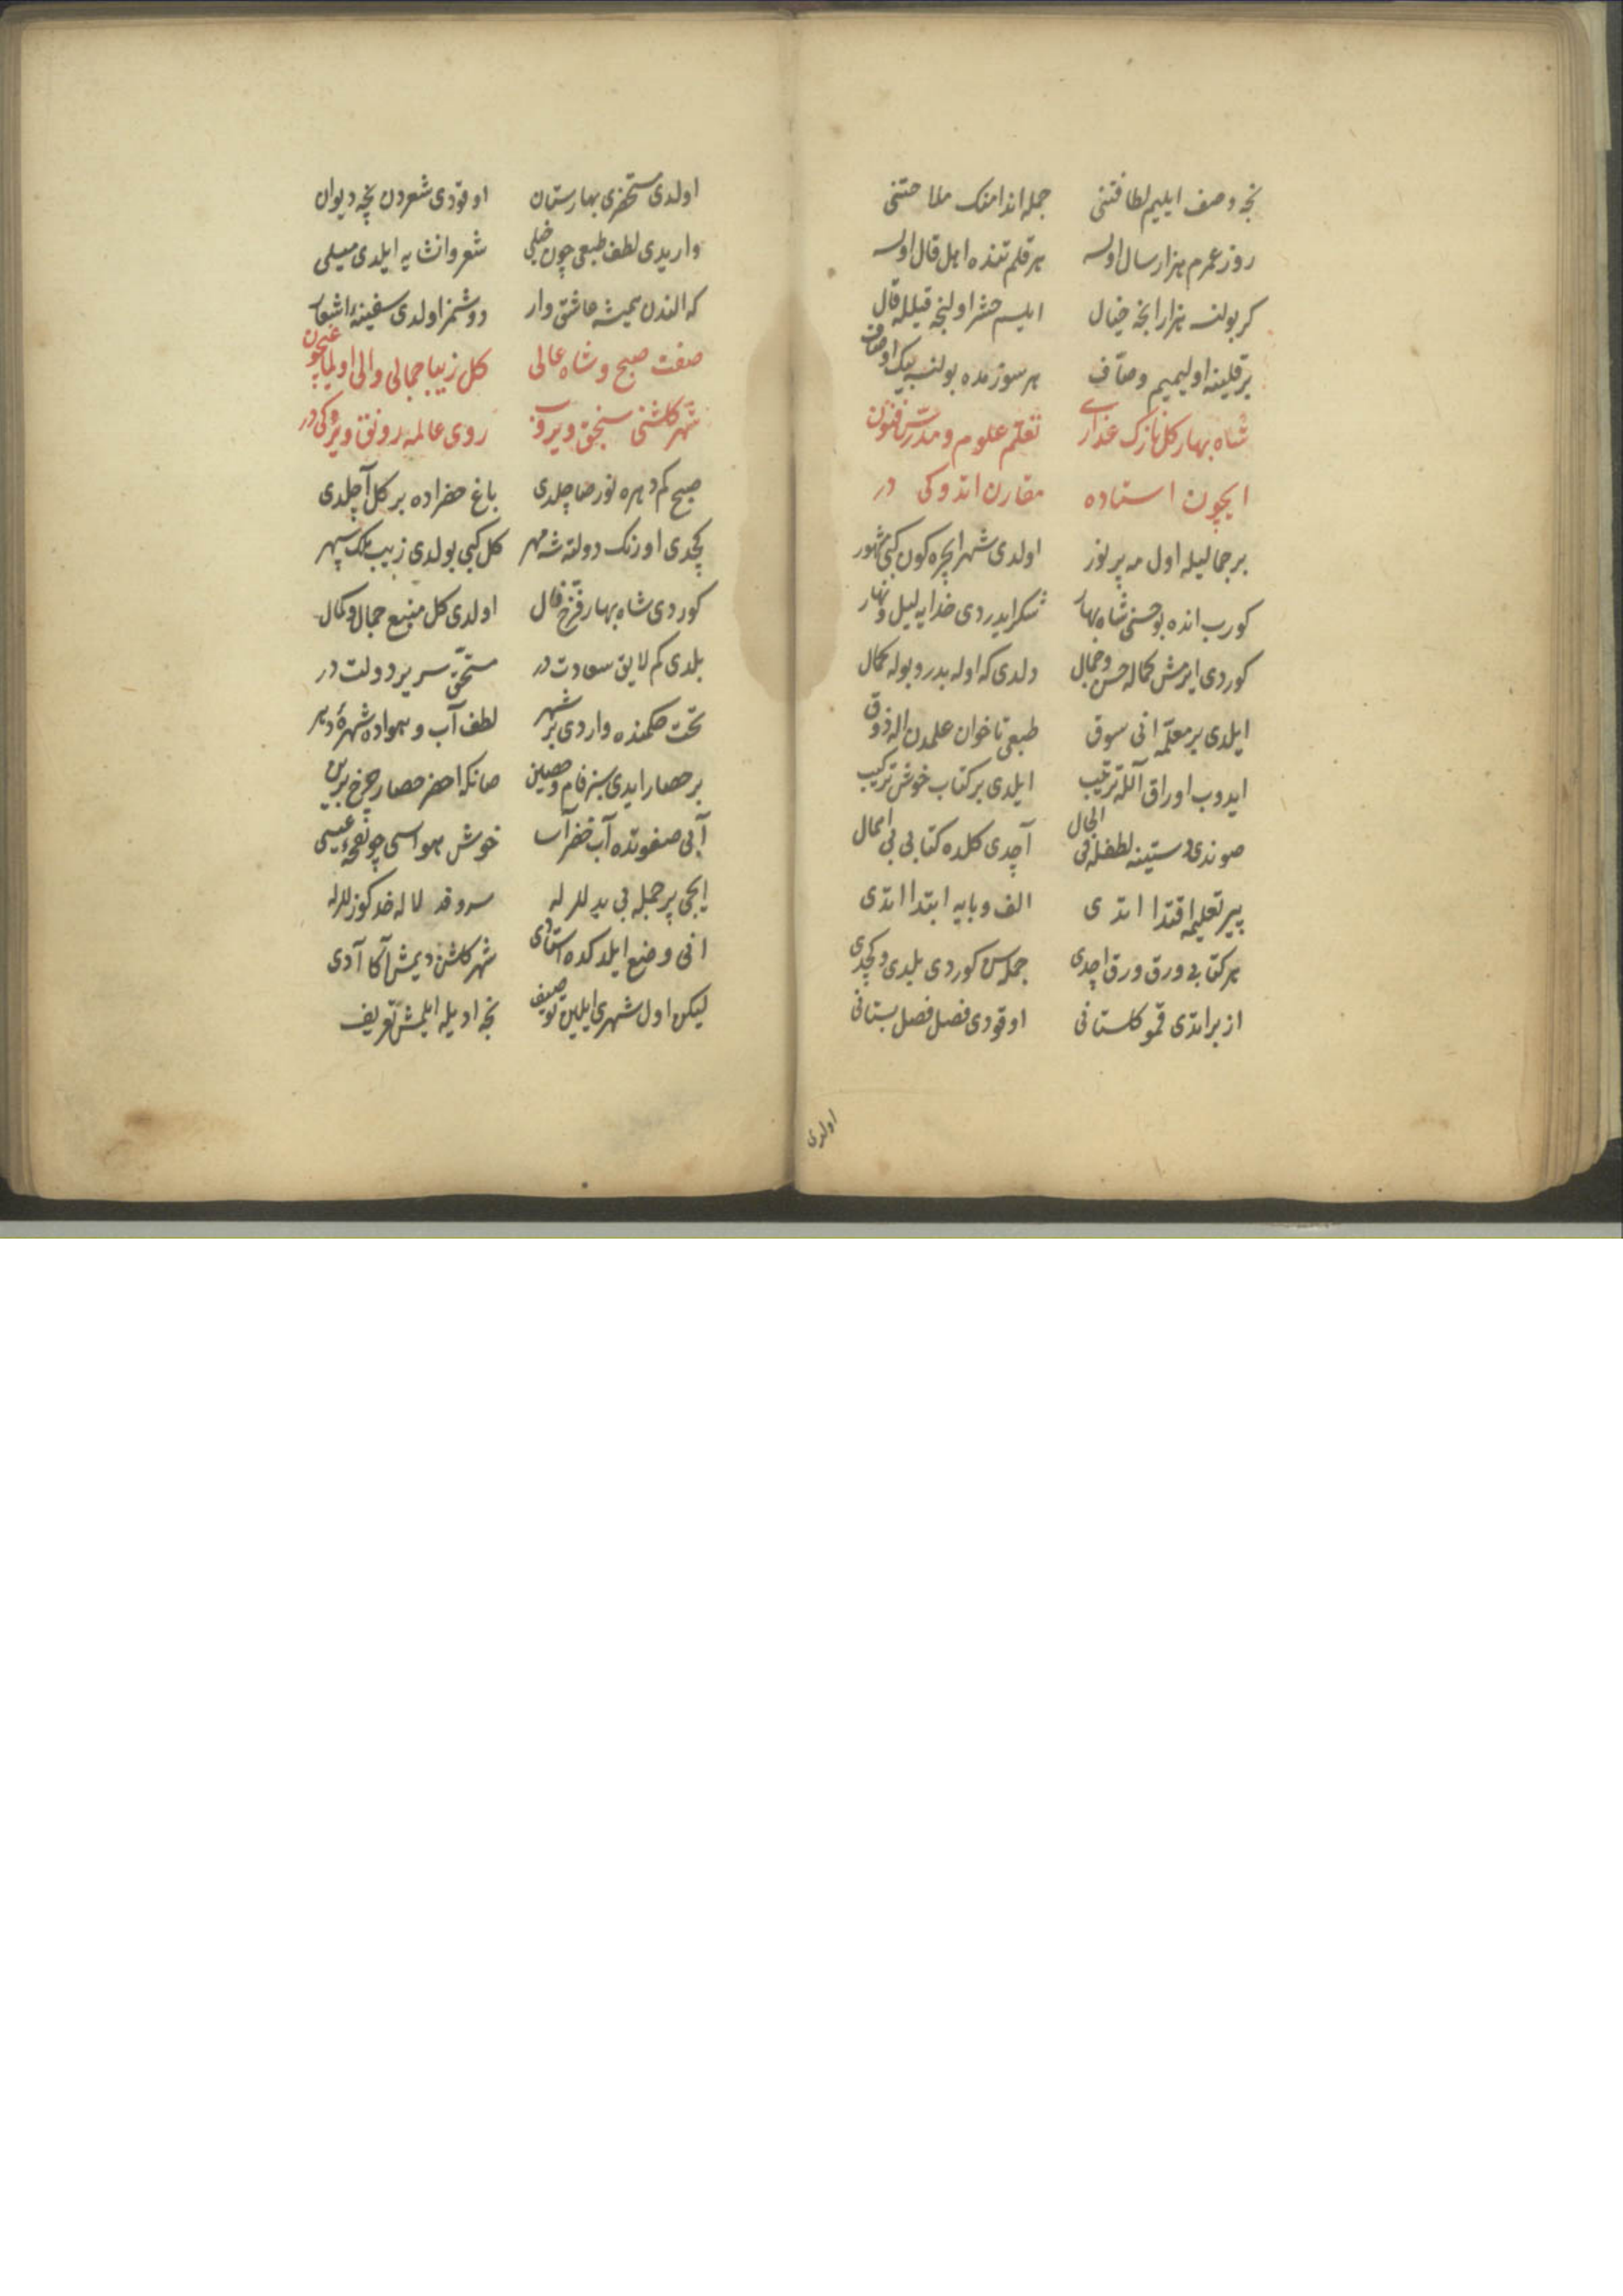 نجه وصف ایلیم لطافتنی جمله اندامنک ملاحتنی
روز عمرم هزار سال اولسه هر قلم تنده اهل قال اولسه
کر بولنسه هزار انجه خیال ایلسم حشر اولنجه قیلله قال
بر قلینه اولیمیم وصاف هر سوزمده بولنسه بیک اوصاف
شاه بهار کل نازک عذاری تعلم علوم و مدرس فنون
ایچون استاده مقارن اتدوکی در
بر جمالیله اول مه پر نور اولدی شهر ایچره کون کبی مشهور
کورب انده بو حسنی شاه بهار شکر ایدردی خدایه لیل و نهار
کوردی ایرمش کماله حسن و جمال دلدی که اوله بدر و بوله کمال
ایلدی بر معلمه انی سوق طبعی تا خوان علمدن اله ذوق
ایدوب اوراق آلله ترتیب ایلدی بر کتاب خوش ترکیب
صوندی دستینه لطفله فی الحال آچدی کلده کتابی بی اهمال
پیر تعلیمه اقتدا اتدی الف و بایه ابتدا اتدی
هر کتابی ورق ورق اچدی جمله سن کوردی بلدی و کچدی
از بر اتدی قمو کلستانی اوقودی فصل فصل بستانی
اولدی
اولدی مستحضری بهارستان اوقودی شعردن نجه دیوان
واریدی لطف طبعی چون خیلی شعر و انشایه ایلدی میلی
که الندن همیشه عاشق وار دوشمز اولدی سفینهٔ اشعار
صفت صبح و شاه عالی کل زیبا جمالی والی اولمغیچون
شهر کلشنی سنجق ویروب روی عالمه رونق ویردوکی در
صبح کم دهره نور صاچلدی باغ خضراده بر کل آچلدی
کچدی اورنک دولته شه مهر کل کبی بولدی زیب ملک سپهر
کوردی شاه بهار فرخ فال اولدی کل منبع جمال و کمال
بلدی کم لایق سعادت در مستحق سریر دولت در
تحت حکمنده واردی بر شهر لطف آب و هواده شهرهٔ دهر
بر حصار ایدی سبز فام و حصین صانکه اخضر حصار چرخ برین
آبی صفوتده آب خضر آسا خوش هواسی چو نفحهٔ عیسی
ایچی پر جمله بی بدللر له سرو قد لاله خد کوزللر له
انی وضع ایلدکده استادی شهر کلشن دیمش آکا آدی
لیکن اول شهری ایلین توصیف نجه ادیله ایلمش تعریف